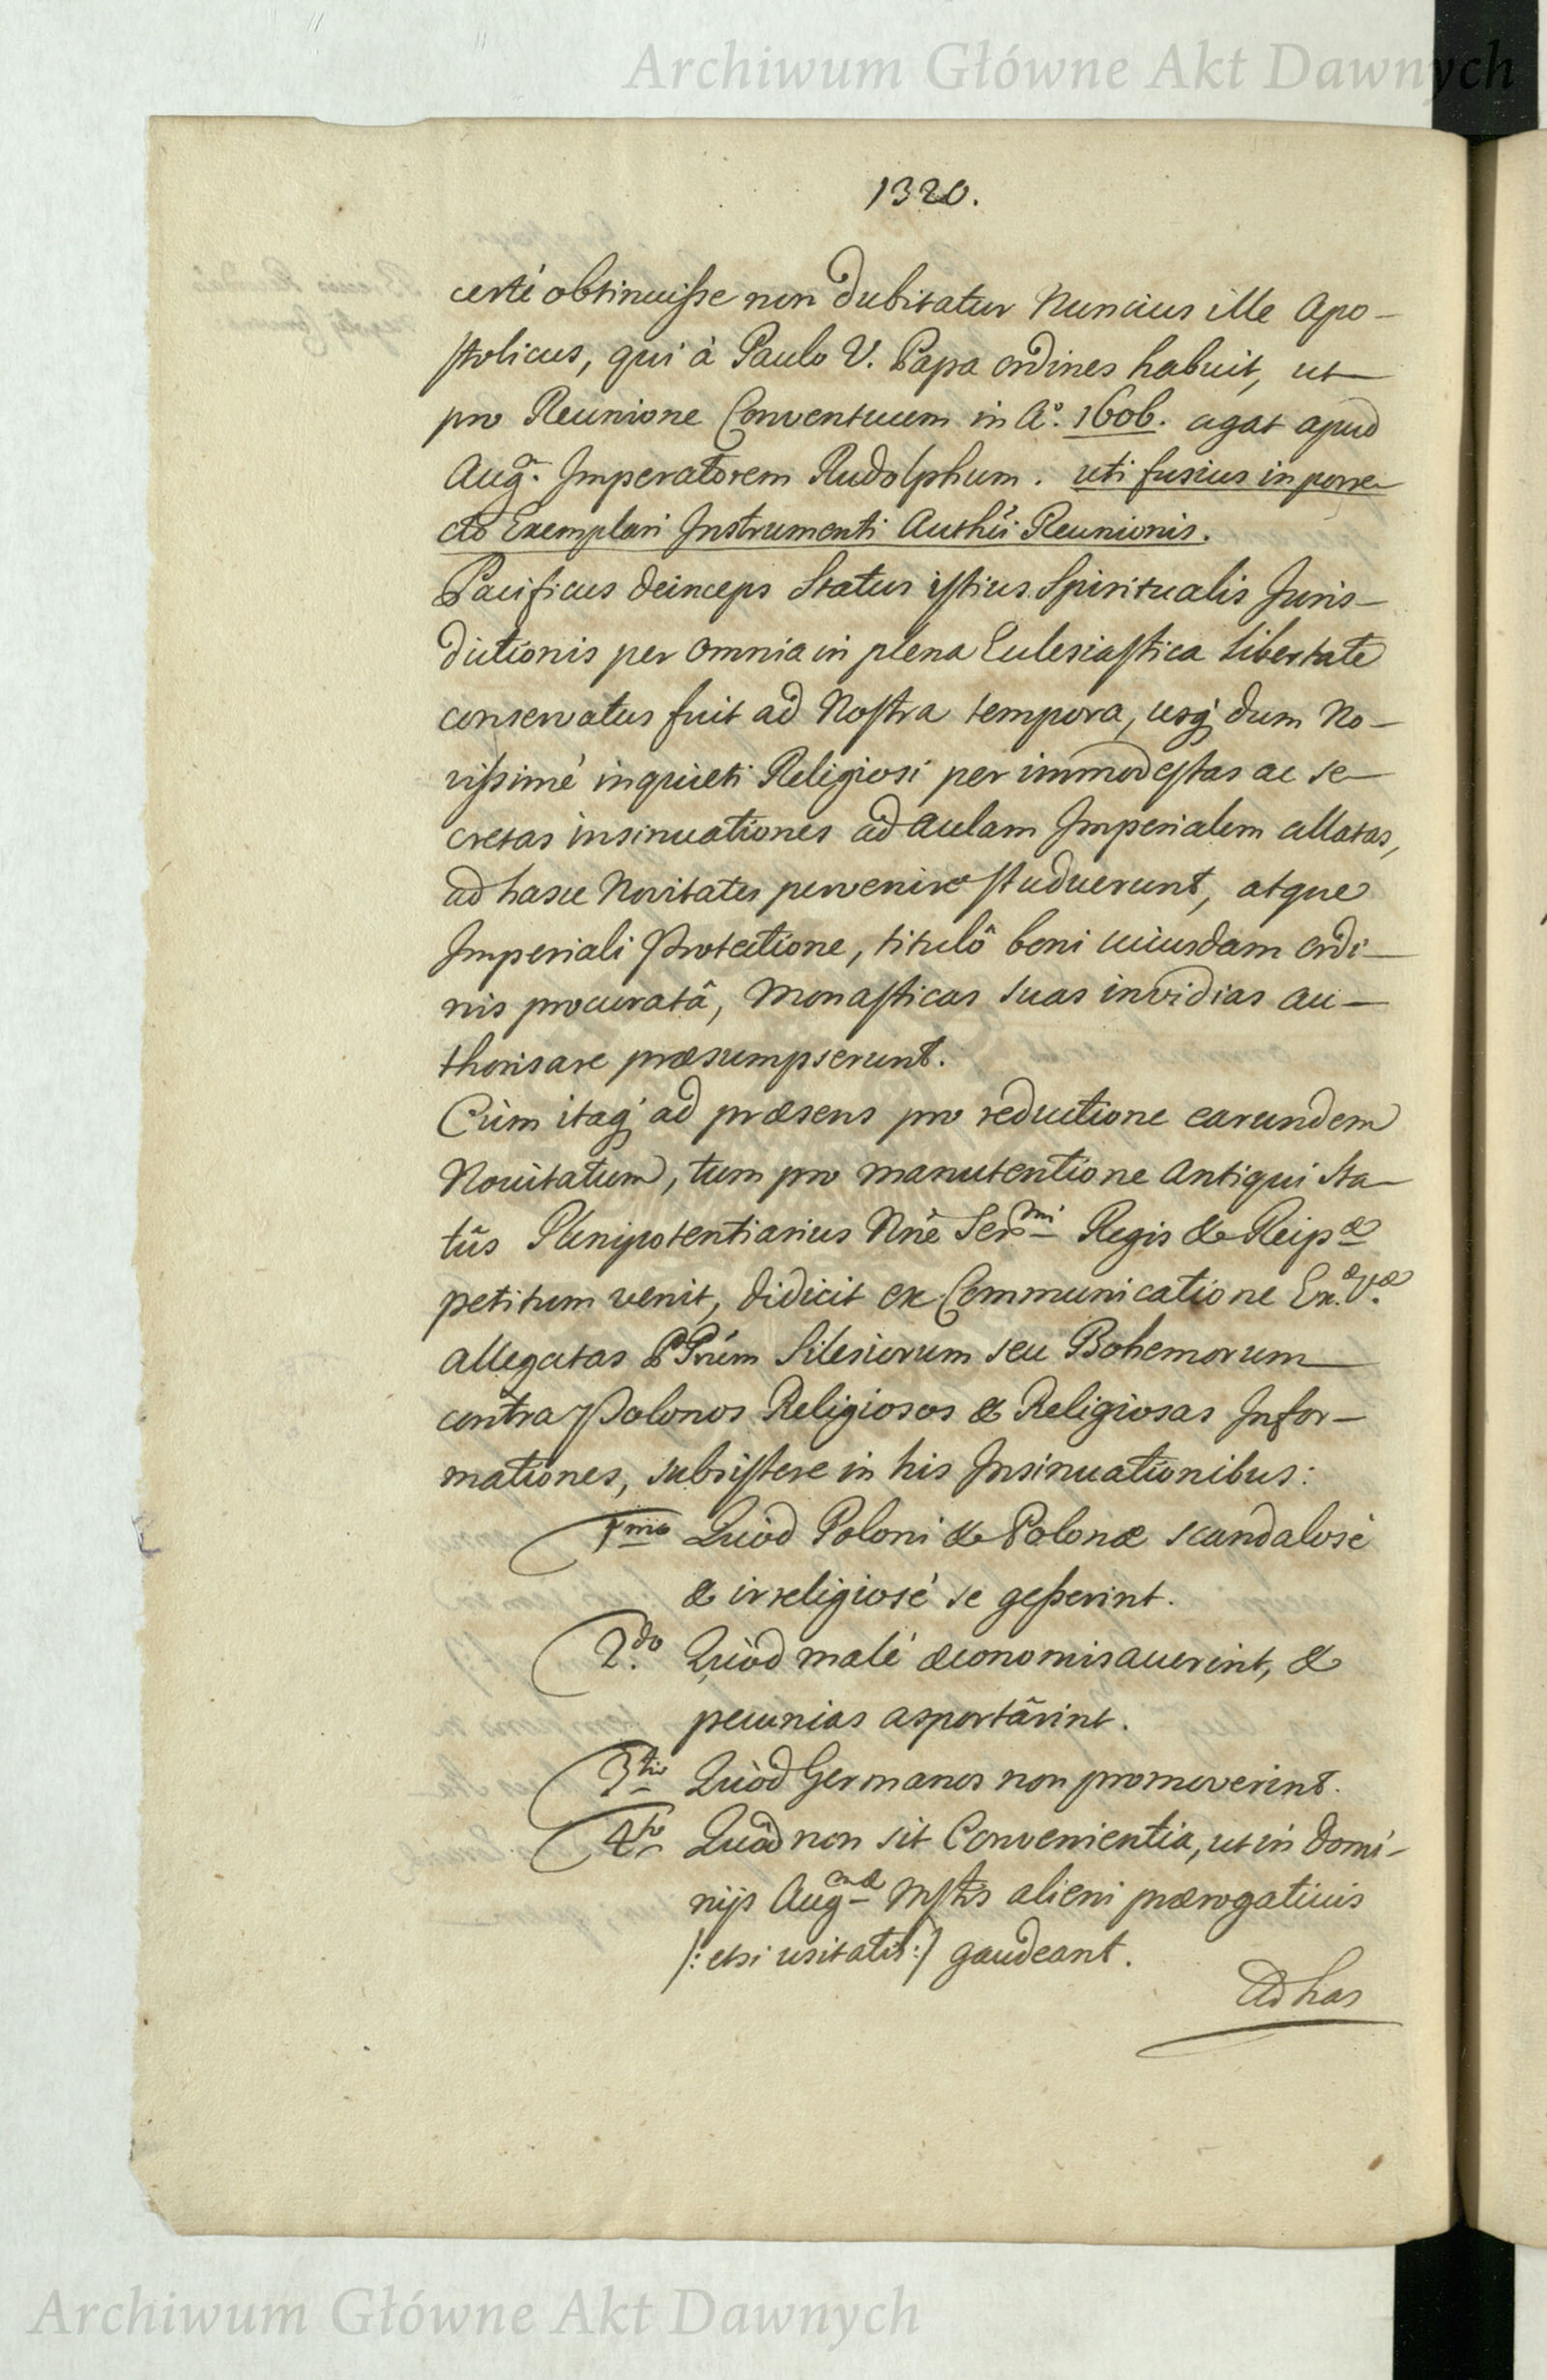 Archiwum Główne Akt Dawnych
1320.
certè obtinuisse non dubitatur Nuncius ille Apo-
stolicus, qui à Paulo V. Papa ordines habuit, ut
pro Reunione Conventuum in Aº. 1606. agat apud
Augm. Imperatorem Rudolphum. uti fusius in porre-
cto Exemplari Instrumenti Authci Reunionis.
Pacificus deinceps Status istius Spiritualis Juris-
dictionis per omnia in plena Ecclesiastica libertate
conservatus fuit ad Nostra tempora, usq dum No-
vissimè inquieti Religiosi per immodestas ac se-
cretas insinuationes ad Aulam Imperialem allatas,
ad hasce Novitates pervenire studuerunt, atque
Imperiali Protectione, titulô boni cuiusdam ordi-
nis procuratâ, Monasticas suas invidias au-
thorisare præsumpserunt.
Cùm itaq ad præsens pro reductione earundem
Novitatum, tum pro manutentione Antiqui Sta-
tûs Plenipotentiarius Nñe Sermi Regis & Reipæ
petitum venit, didicit ex Communicatione Ex.æ V.æ
allegatas PPrúm Silesiorum seu Bohemorum
contra Polonos Religiosos & Religiosas Infor-
mationes, subsistere in his Insinuationibus:
1mo Quòd Poloni & Polonæ scandalosè
& irreligiosè se gesserint.
2.do Quòd malè œconomisauerint, &
pecunias asportârint.
3tio Quòd Germanos non promoverint.
4to Quòd non sit Convenientia, ut in Domi-
nijs Augmæ Mstis alieni prærogativis
/: etsi usitatis :/ gaudeant.
Ad has
Archiwum Główne Akt Dawnych